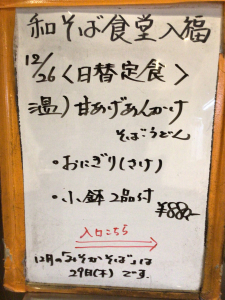 和そば食堂入福
12/26〈日替定食〉
温)甘あげあんかけ
そば・うどん
・おにぎり(さけ)
・小鉢2品付
¥880-
入口こちら
12月の「みそかそば」は
29日(木)です。